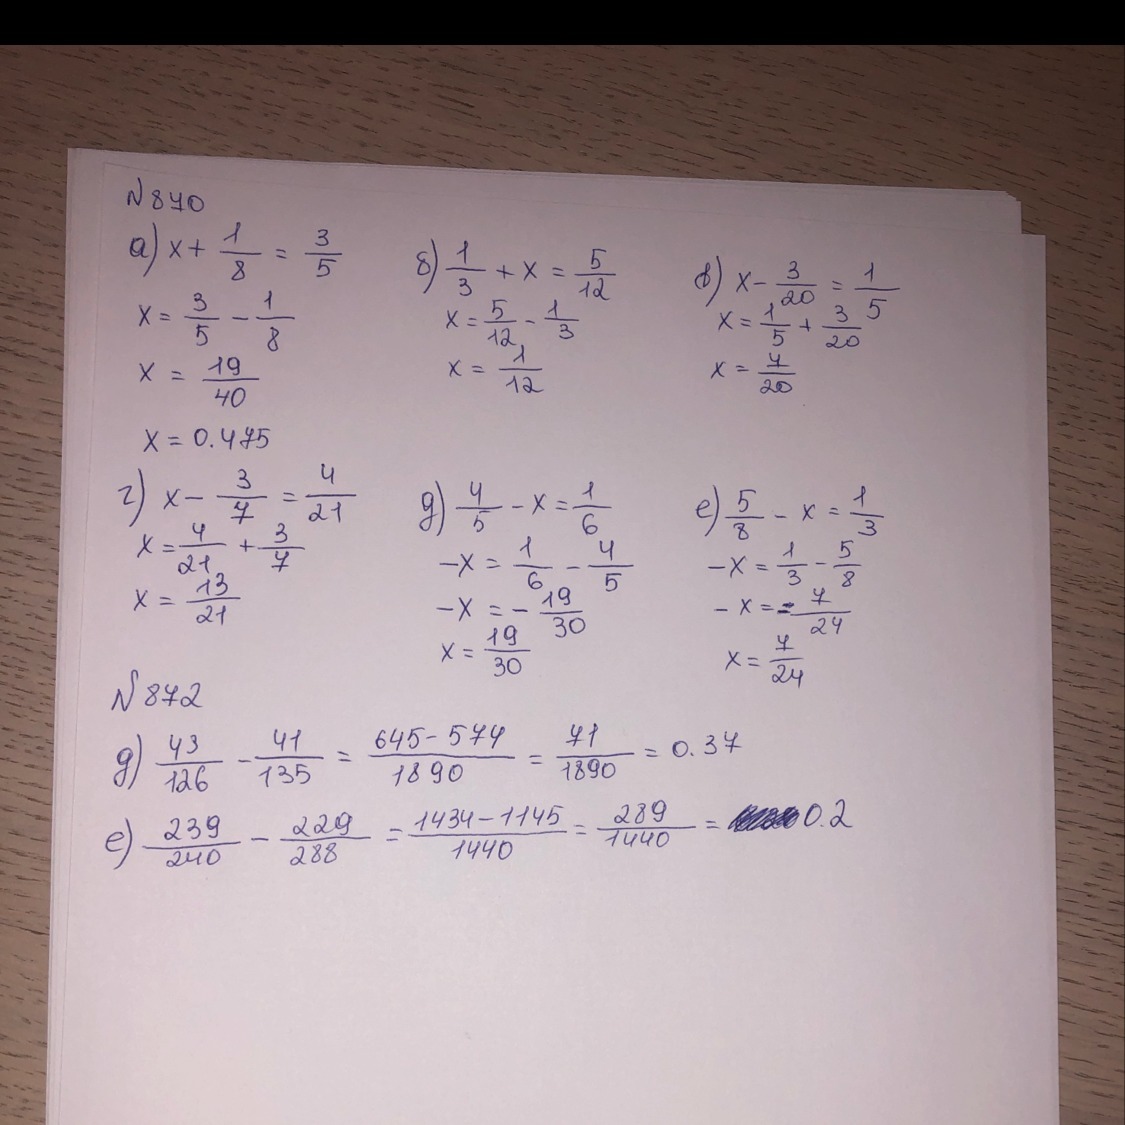 N 870
а) x + 1/8 = 3/5
x = 3/5 - 1/8
x = 19/40
x = 0.475
б) 1/3 + x = 5/12
x = 5/12 - 1/3
x = 1/12
в) x - 3/20 = 1/5
x = 1/5 + 3/20
x = 7/20
г) x - 3/7 = 4/21
x = 4/21 + 3/7
x = 13/21
д) 4/5 - x = 1/6
-x = 1/6 - 4/5
-x = - 19/30
x = 19/30
е) 5/8 - x = 1/3
-x = 1/3 - 5/8
-x = - 7/24
x = 7/24
N 872
д) 43/126 - 41/135 = (645 - 574)/1890 = 71/1890 = 0.37
е) 239/240 - 229/288 = (1434 - 1145)/1440 = 289/1440 = 0.2